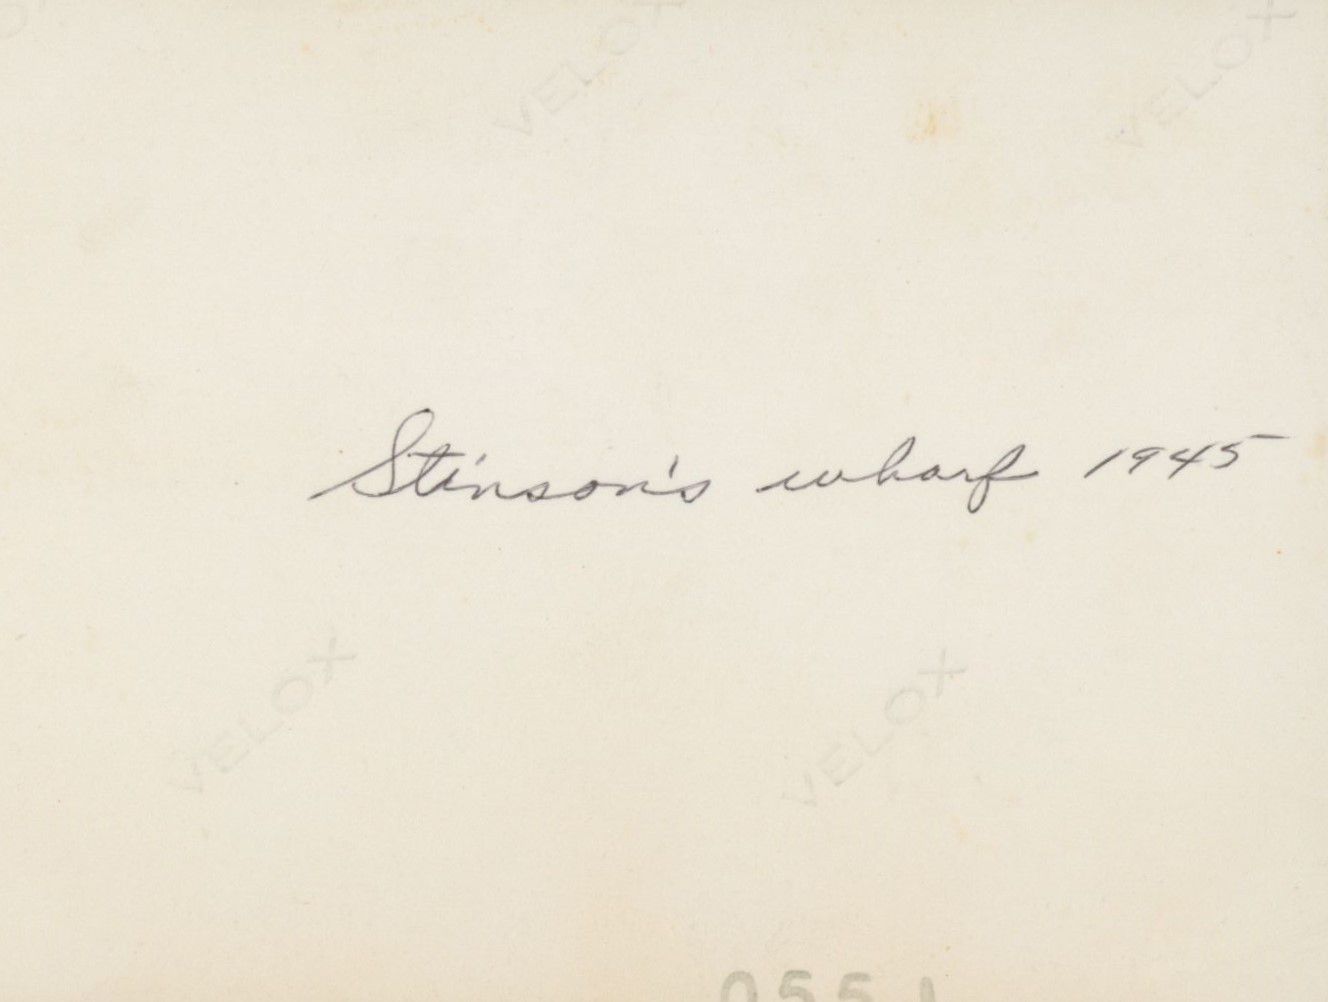 VELOX
VELOX
Stinson's wharf 1945
VELOX
VELOX